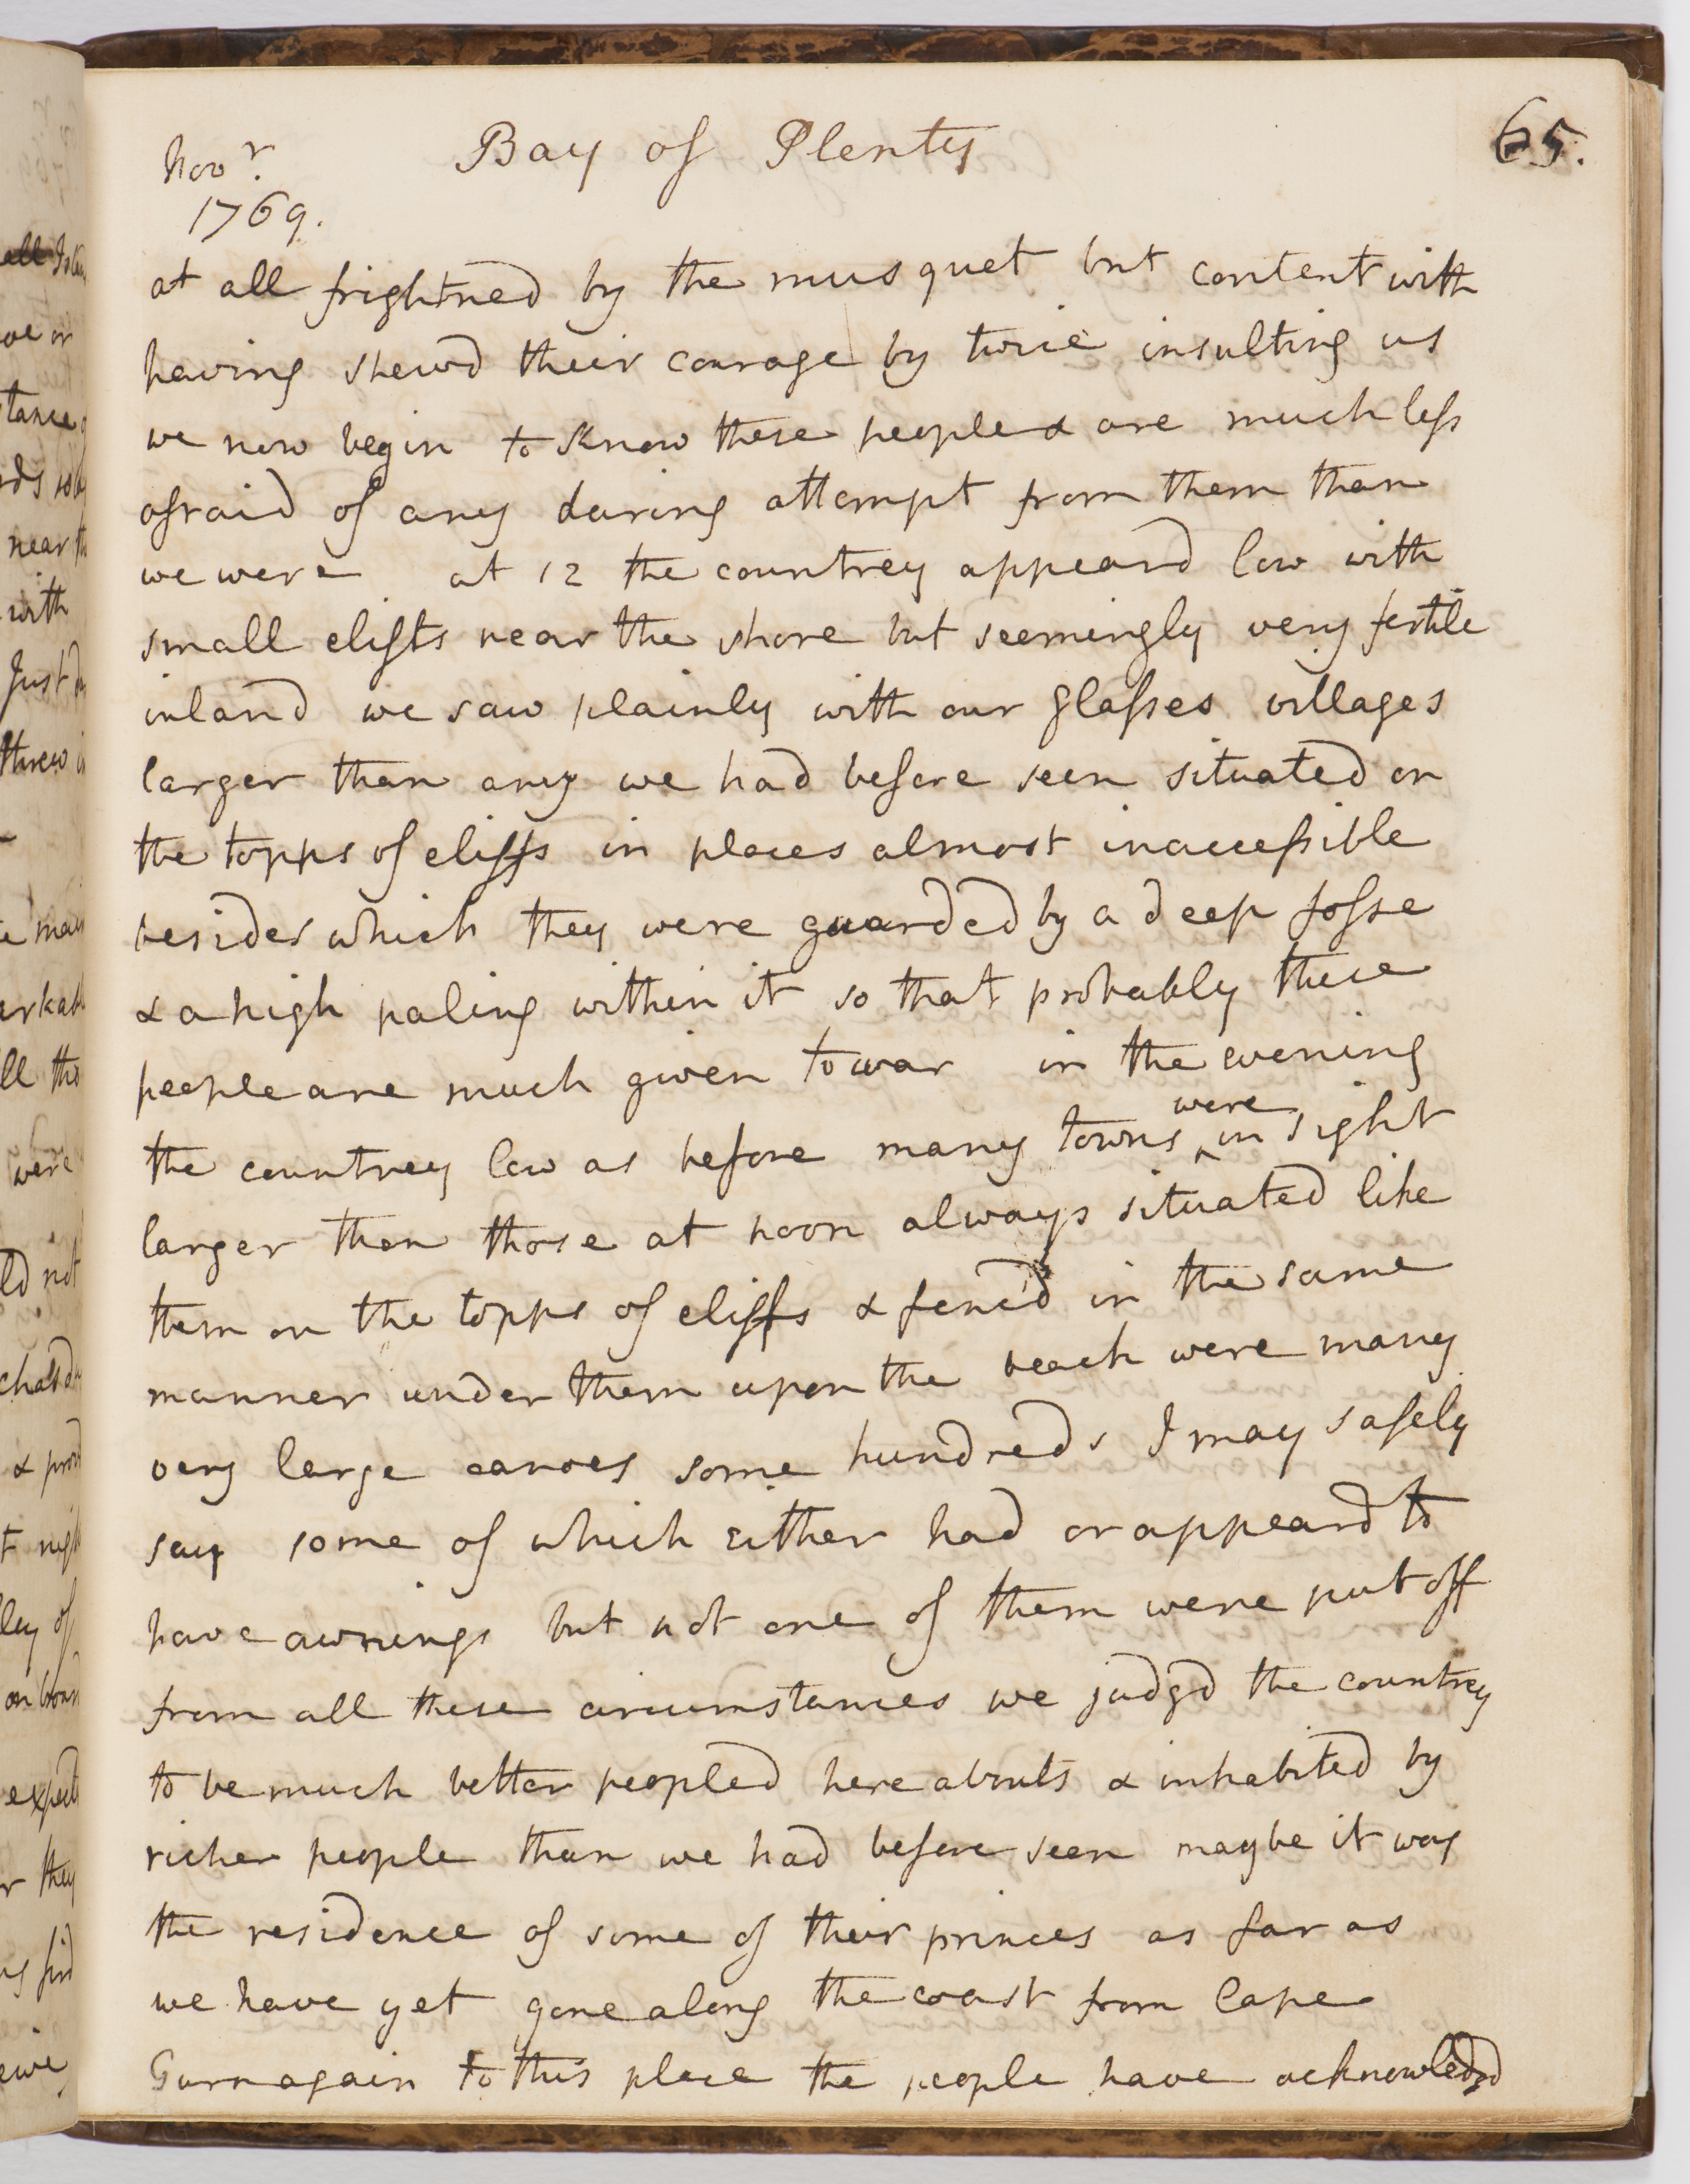 Novr. Bay of Plenty 65.
1769.
at all frightned by the musquet but content with
having shewd their courage by twice insulting us
we now begin to know these people & are much less
afraid of any daring attempt from them than
we were at 12 the countrey appeard low with
small clifts near the shore but seemingly very fertile
inland we saw plainly with our glasses villages
larger than any we had before seen situated on
the topps of cliffs in places almost inaccessible
besides which they were guarded by a deep fosse
& a high paling within it so that probably these
people are much given to war in the evening
the countrey low as before many towns were in sight
larger than those at noon always situated like
them on the topps of cliffs & fenc'd in the same
manner under them upon the beach were many
very large canoes some hundreds I may safely
say some of which either had or appeard to
have awnings but not one of them were put off
from all these circumstances we judgd the countrey
to be much better peopled here abouts & inhabited by
richer people than we had before seen maybe it was
the residence of some of their princes as far as
we have yet gone along the coast from Cape
Turnagain to this place the people have acknowledgd